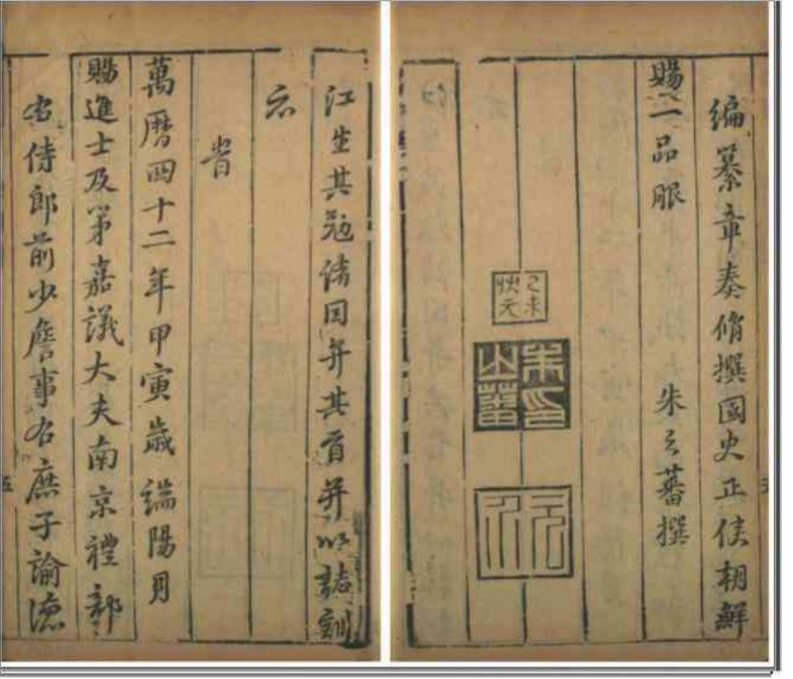 江生其勉諸因弁其首并以誌
云
旹
萬曆四十二年甲寅歲端陽月
賜進士及第嘉議大夫南京禮部
右侍郎前少詹事右庶子諭德
五
編纂章奏脩撰國史正使朝鮮
賜一品服 朱之蕃撰
乙未狀元
朱印之蕃
元介